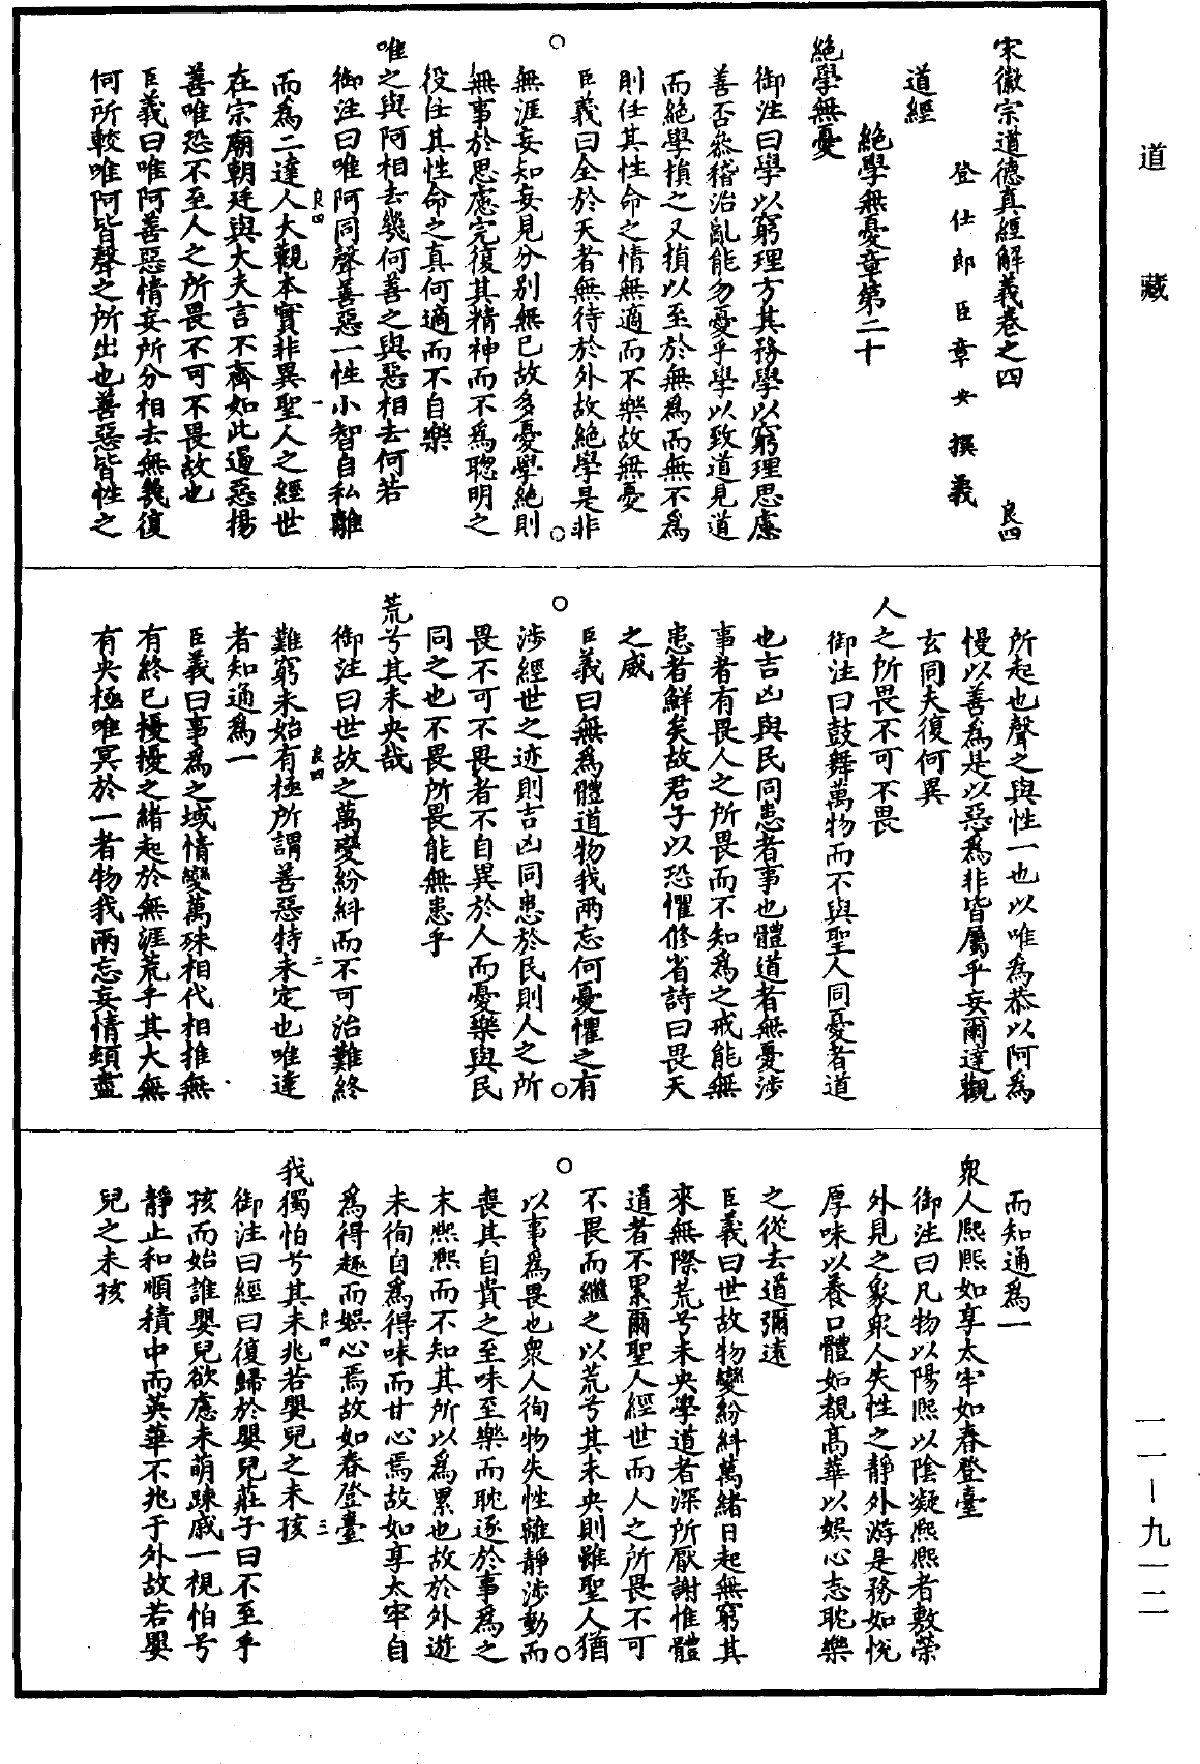 道藏
宋徽宗道德真經解義卷之四 良四
登仕郎臣章安撰義
道經
絕學無憂章第二十
絕學無憂
御注曰學以窮理方其務學以窮理思慮
善否參稽治亂能勿憂乎學以致道見道
而絕學損之又損以至於無為而無不為
則任其性命之情無適而不樂故無憂
臣義曰全於天者無待於外故絕學是非
無涯妄知妄見分別無已故多憂學絕則
無事於思慮完復其精神而不為聰明之
役任其性命之真何適而不自樂
唯之與阿相去幾何善之與惡相去何若
御注曰唯阿同聲善惡一性小智自私離
良四 一
而為二達人大觀本實非異聖人之經世
在宗廟朝廷與大夫言不齊如此遏惡揚
善唯恐不至人之所畏不可不畏故也
臣義曰唯阿善惡情妄所分相去無幾復
何所較唯阿皆聲之所出也善惡皆性之
所起也聲之與性一也以唯為恭以阿為
慢以善為是以惡為非皆屬乎妄爾達觀
玄同夫復何異
人之所畏不可不畏
御注曰鼓舞萬物而不與聖人同憂者道
也吉凶與民同患者事也體道者無憂涉
事者有畏人之所畏而不知為之戒能無
患者鮮矣故君子以恐懼修省詩曰畏天
之威
臣義曰無為體道物我兩忘何憂懼之有
涉經世之迹則吉凶同患於民則人之所
畏不可不畏者不自異於人而憂樂與民
同之也不畏所畏能無患乎
荒兮其未央哉
御注曰世故之萬變紛糾而不可治難終
良四 二
難窮未始有極所謂善惡特未定也唯達
者知通為一
臣義曰事為之域情變萬殊相代相推無
有終已擾擾之緒起於無涯荒乎其大無
有央極唯冥於一者物我兩忘妄情頓盡
而知通為一
衆人熙熙如享太牢如春登臺
御注曰凡物以陽熙以陰凝熙熙者敷榮
外見之象衆人失性之靜外游是務如悅
厚味以養口體如覩高華以娛心志耽樂
之從去道彌遠
臣義曰世故物變紛糾萬緒日起無窮其
來無際荒兮未央學道者深所厭謝惟體
道者不累爾聖人經世而人之所畏不可
不畏而繼之以荒兮其未央則雖聖人猶
以事為畏也衆人徇物失性離靜涉動而
喪其自貴之至味至樂而耽逐於事為之
末熙熙而不知其所以為累也故於外遊
未徇自為得味而甘心焉故如享太牢自
為得趣而娛心焉故如春登臺
良四 三
我獨怕兮其未兆若嬰兒之未孩
御注曰經曰復歸於嬰兒莊子曰不至乎
孩而始誰嬰兒欲慮未萌踈戚一視怕兮
靜止和順積中而英華不兆于外故若嬰
兒之未孩
一一—九一二